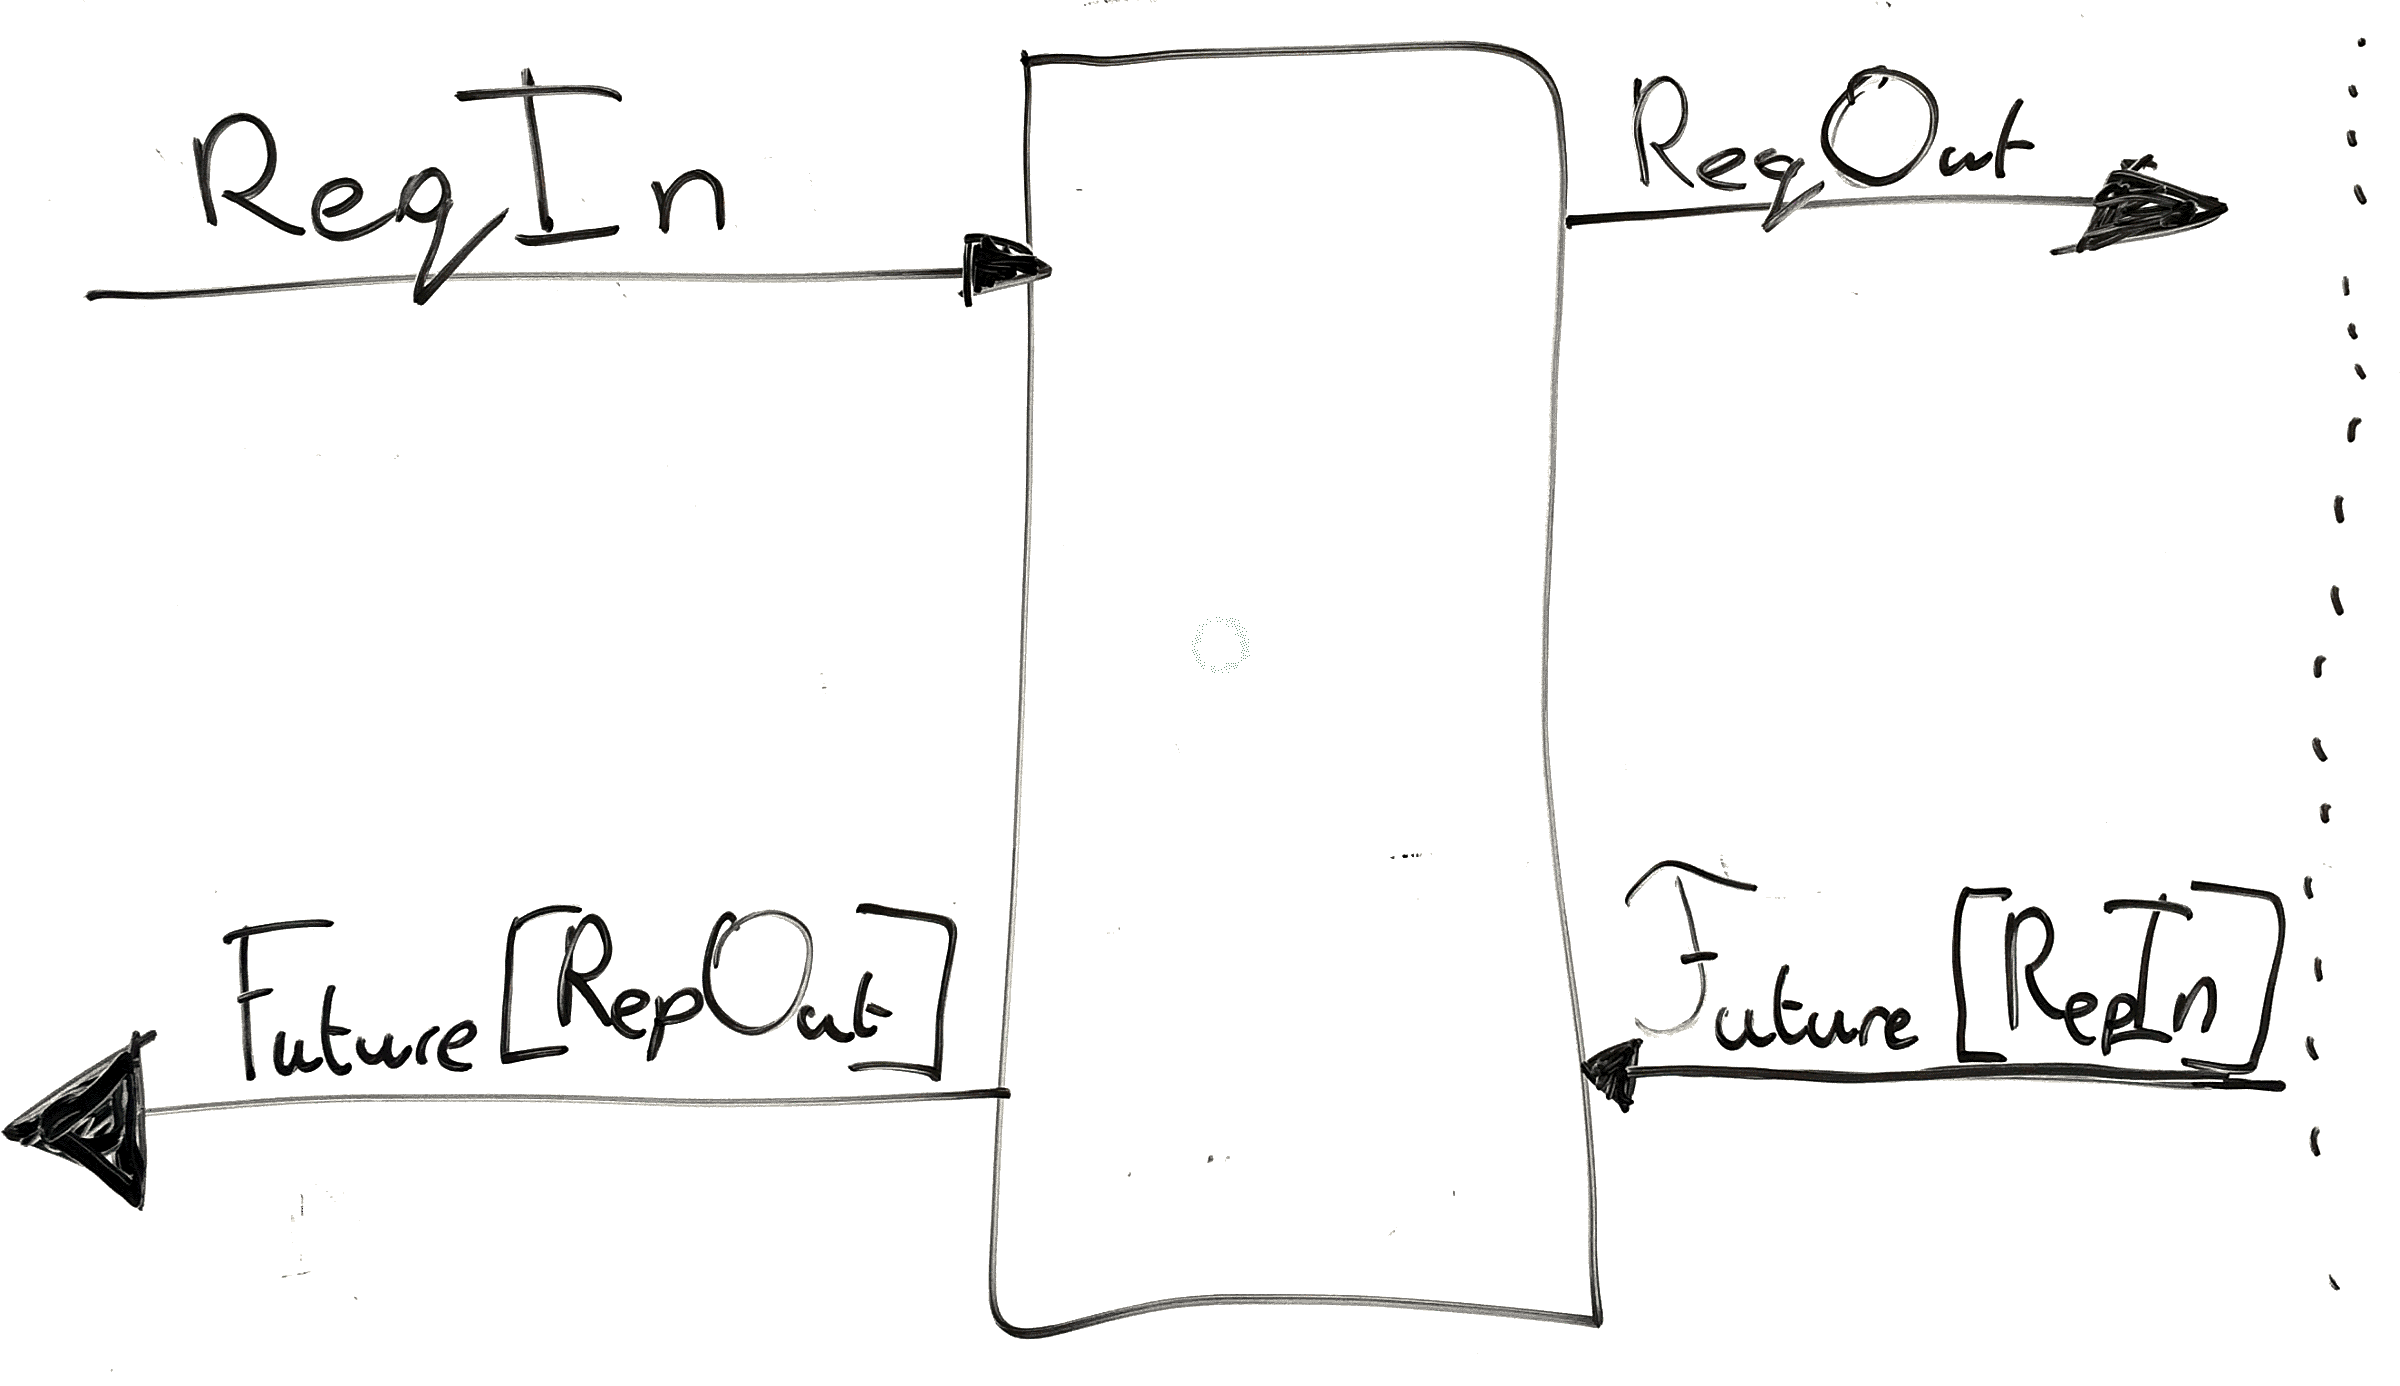 ReqIn
ReqOut
Future[RepOut]
Future [RepIn]